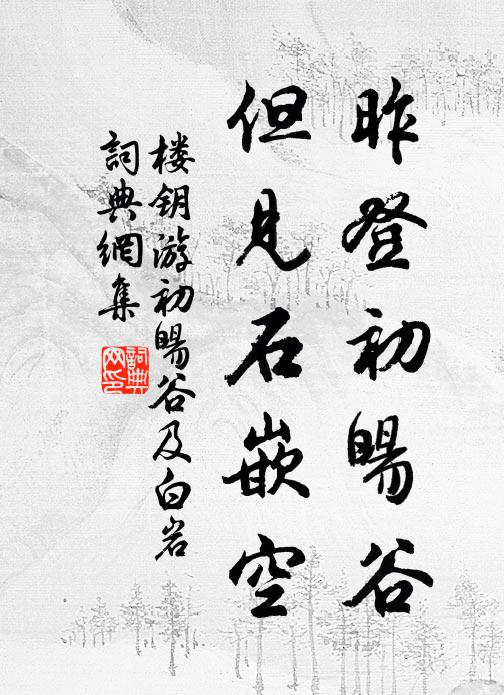 昨登初暘谷
但見石嵌空
楼钥游初暘谷及白岩
詞典網集
詞典网印